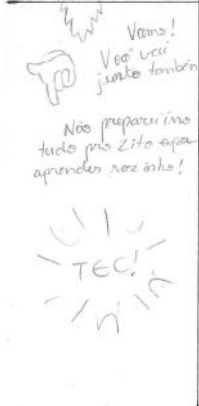 Vamos!
Você vai
junto também
Não preparei isso
tudo pro Zito apa
aprender sozinho!
TEC!